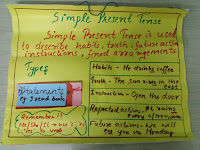 Simple Present Tense
Simple Present Tense is used
to describe habits, truth, future action
instructions, fixed arrangements
Types
Statements
eg I read book
Remember
He/She
to verb
Habits - He drinks coffee
Truth - The sun rises in the
east
Instruction - Open the door
Repeated action - It rains
every afternoon
Future action - We will
see you on Monday